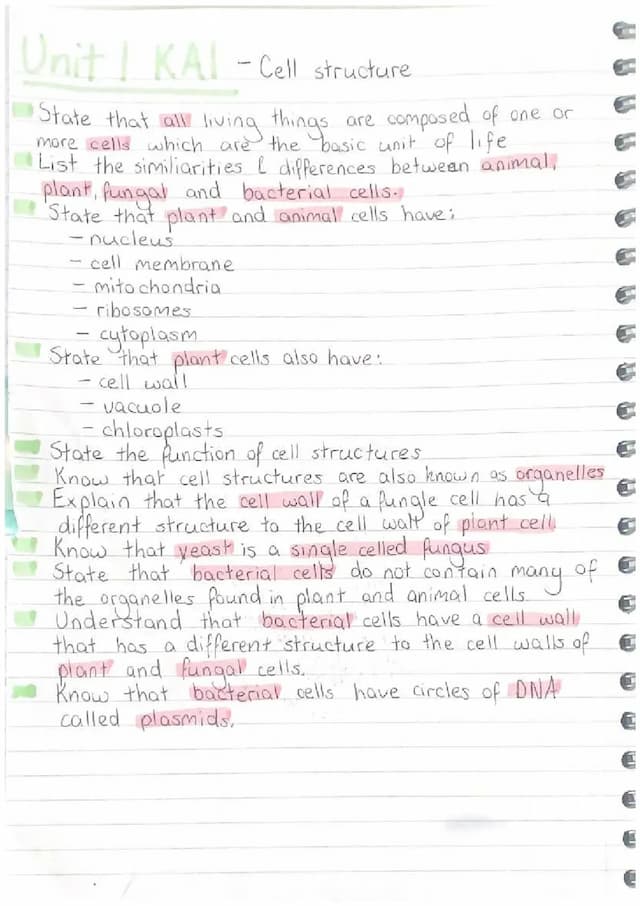 Unit 1 KA1 - Cell structure
State that all living things are composed of one or
more cells which are the basic unit of life
List the similiarities & differences between animal,
plant, fungal and bacterial cells.
State that plant and animal cells have:
- nucleus
- cell membrane
- mitochondria
- ribosomes
- cytoplasm
State that plant cells also have:
- cell wall
- vacuole
- chloroplasts
State the function of cell structures
Know that cell structures are also known as organelles
Explain that the cell wall of a fungle cell has a
different structure to the cell wall of plant cell
Know that yeast is a single celled fungus
State that bacterial cells do not contain many of
the organelles found in plant and animal cells
Understand that bacterial cells have a cell wall
that has a different structure to the cell walls of
plant and fungal cells.
Know that bacterial cells have circles of DNA
called plasmids.